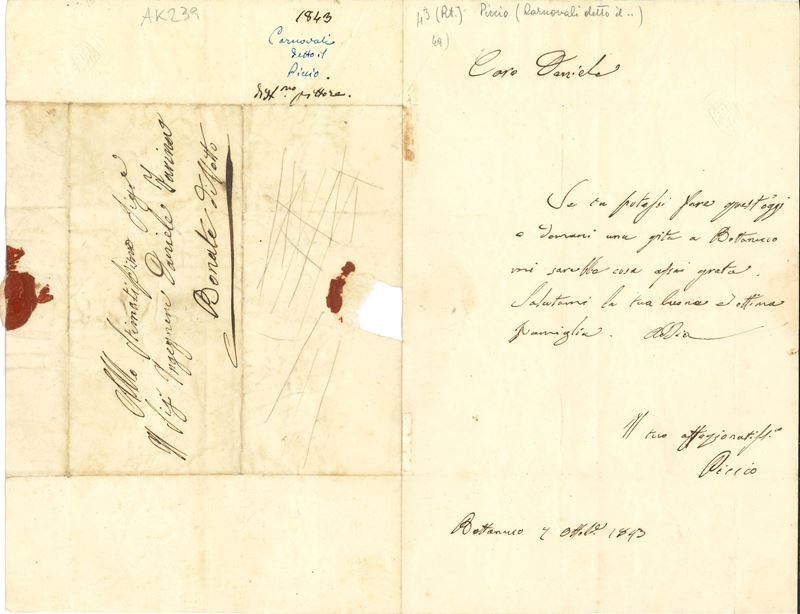 AK239
1843
Carnovali
detto il
Piccio.
dist.mo pittore.
Allo Stimatissimo Sigre
Il Sigr Ingegnere Daniele Farina
Bonate di Sotto
43 (Pit.) - Piccio (Carnovali detto il ..)
Caro Daniele
Se tu potessi fare quest'oggi
o domani una gita a Bottanuco
mi sarebbe cosa assai grata.
Salutami la tua buona ed ottima
famiglia. Addio
Il tuo affezionatiss.o
Piccio
Bottanuco 7 Ottob. 1843